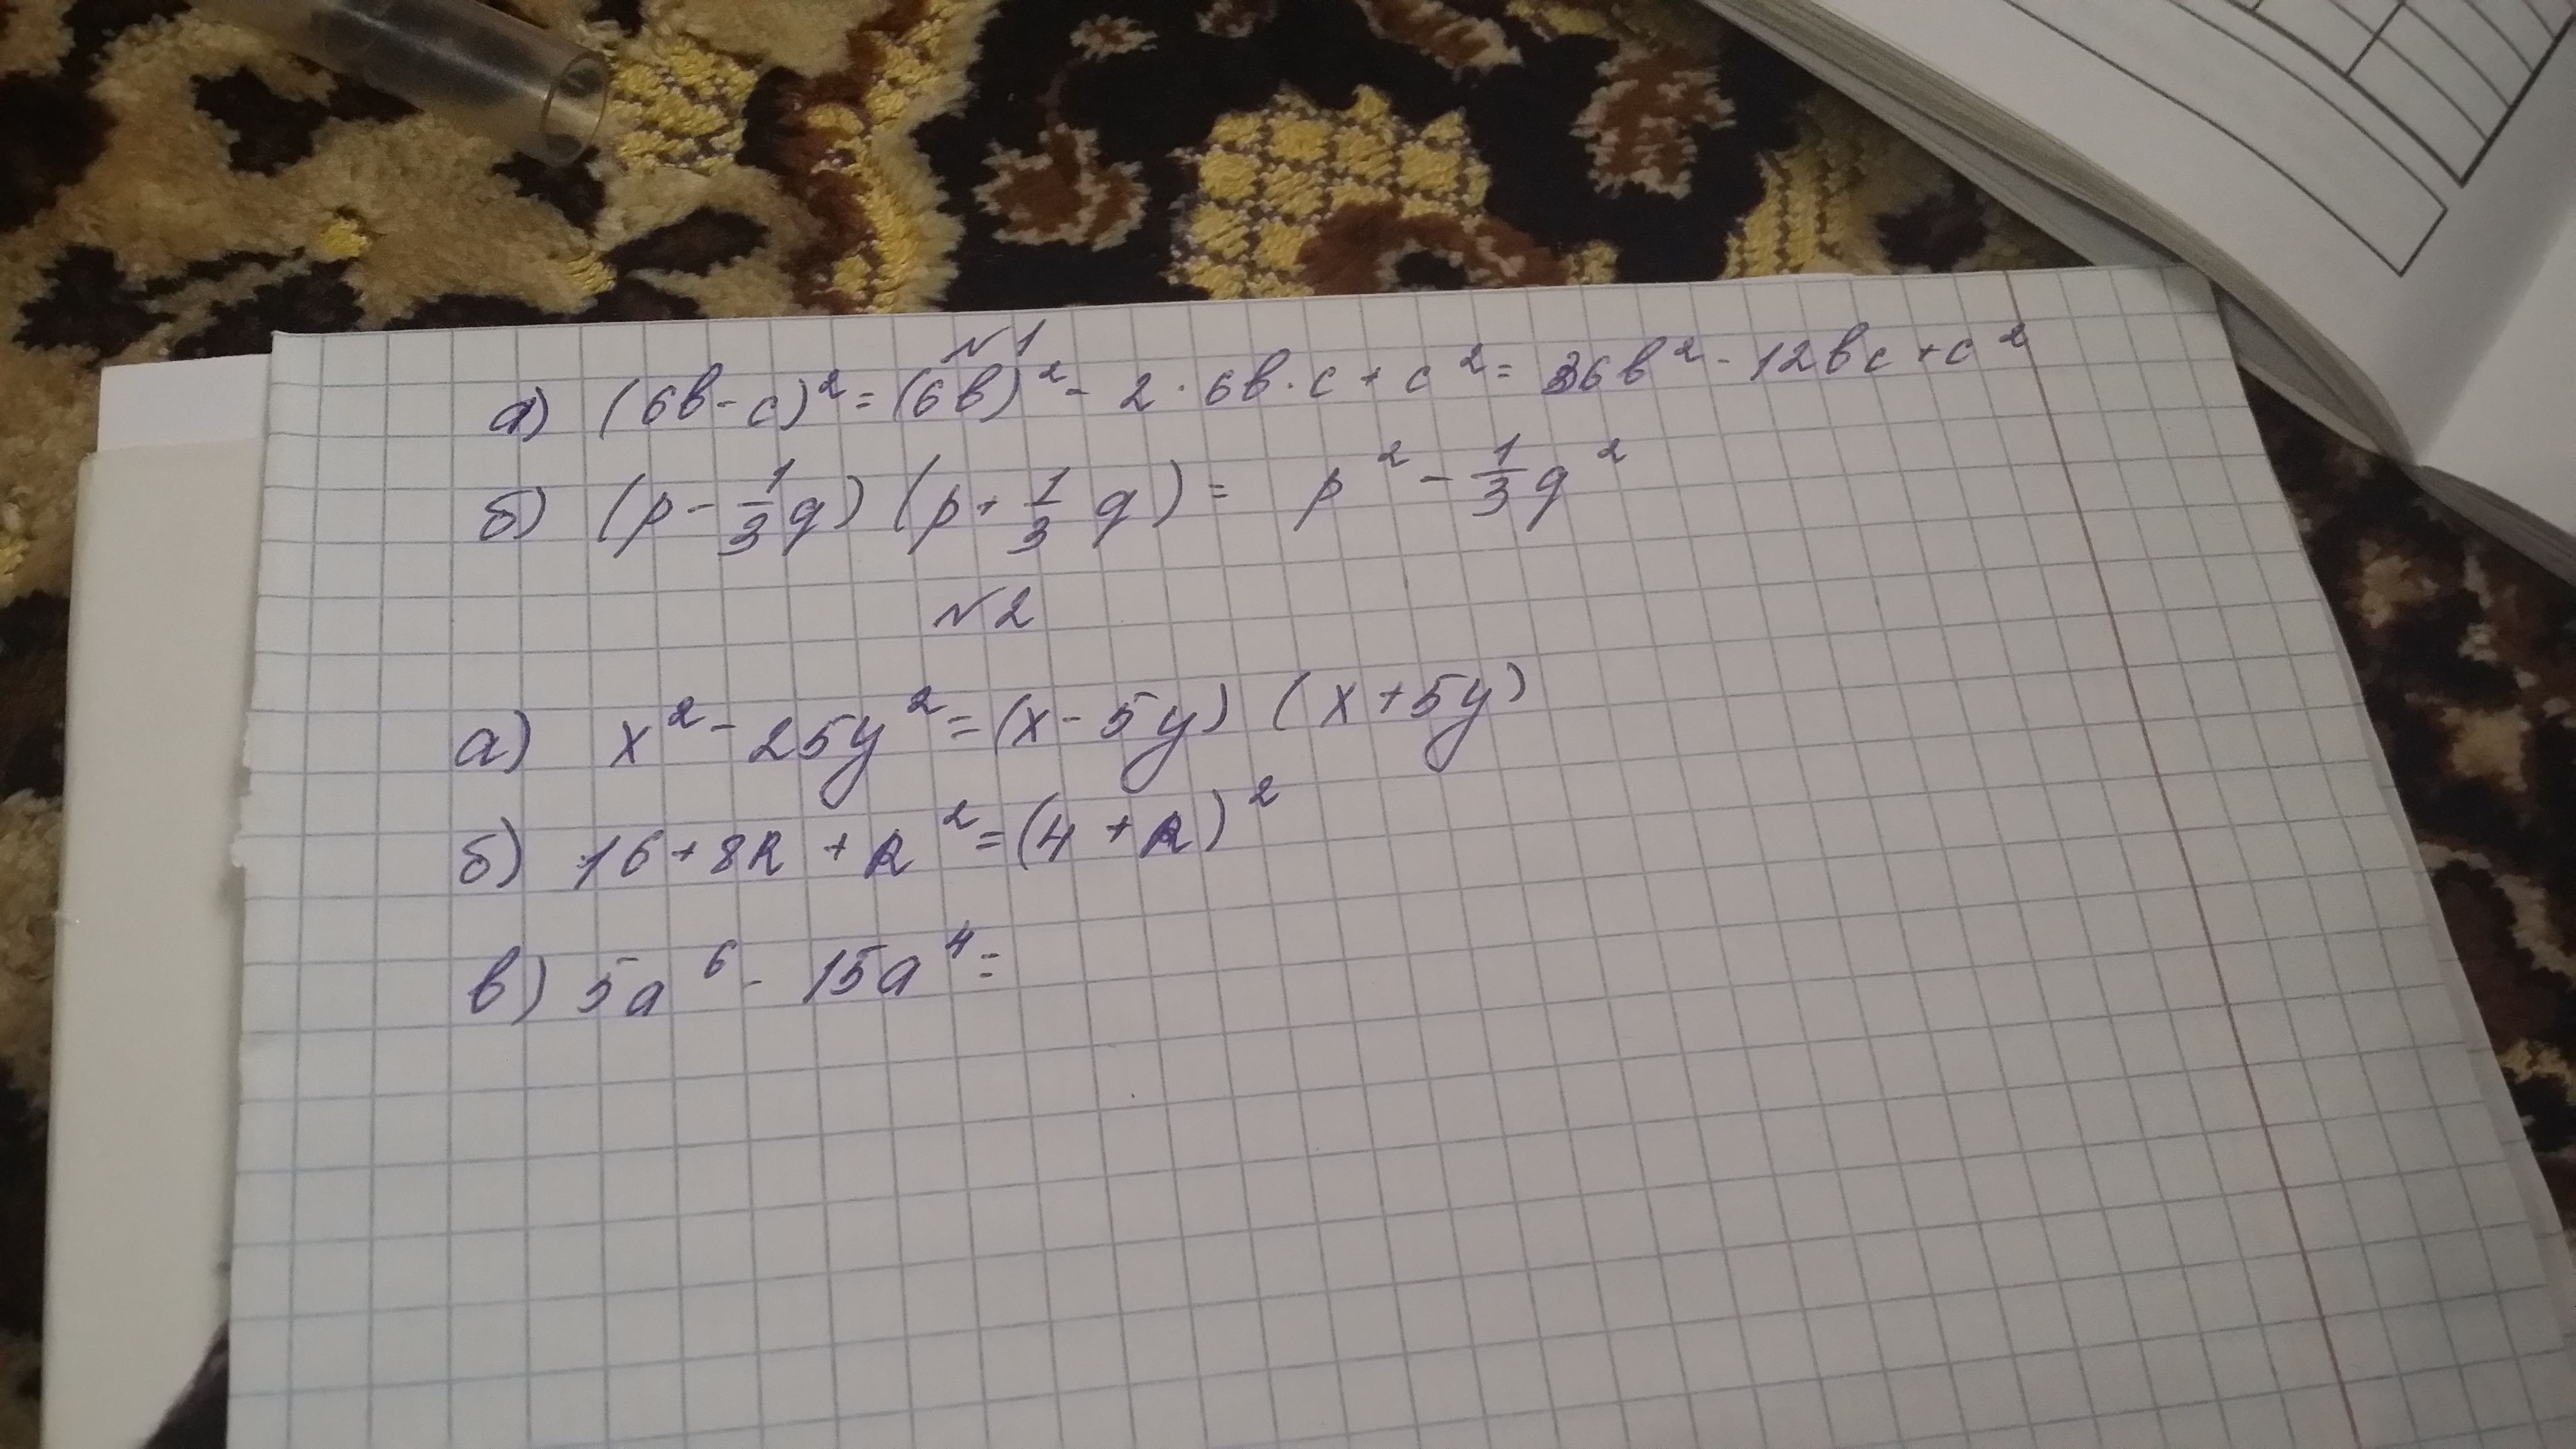 №1
а) (6b - c)² = (6b)² - 2 · 6b · c + c² = 36b² - 12bc + c²
б) (p - 1/3 q) (p + 1/3 q) = p² - 1/3 q²
№2
а) x² - 25y² = (x - 5y) (x + 5y)
б) 16 + 8k + k² = (4 + k)²
в) 5a⁶ - 15a⁴ =